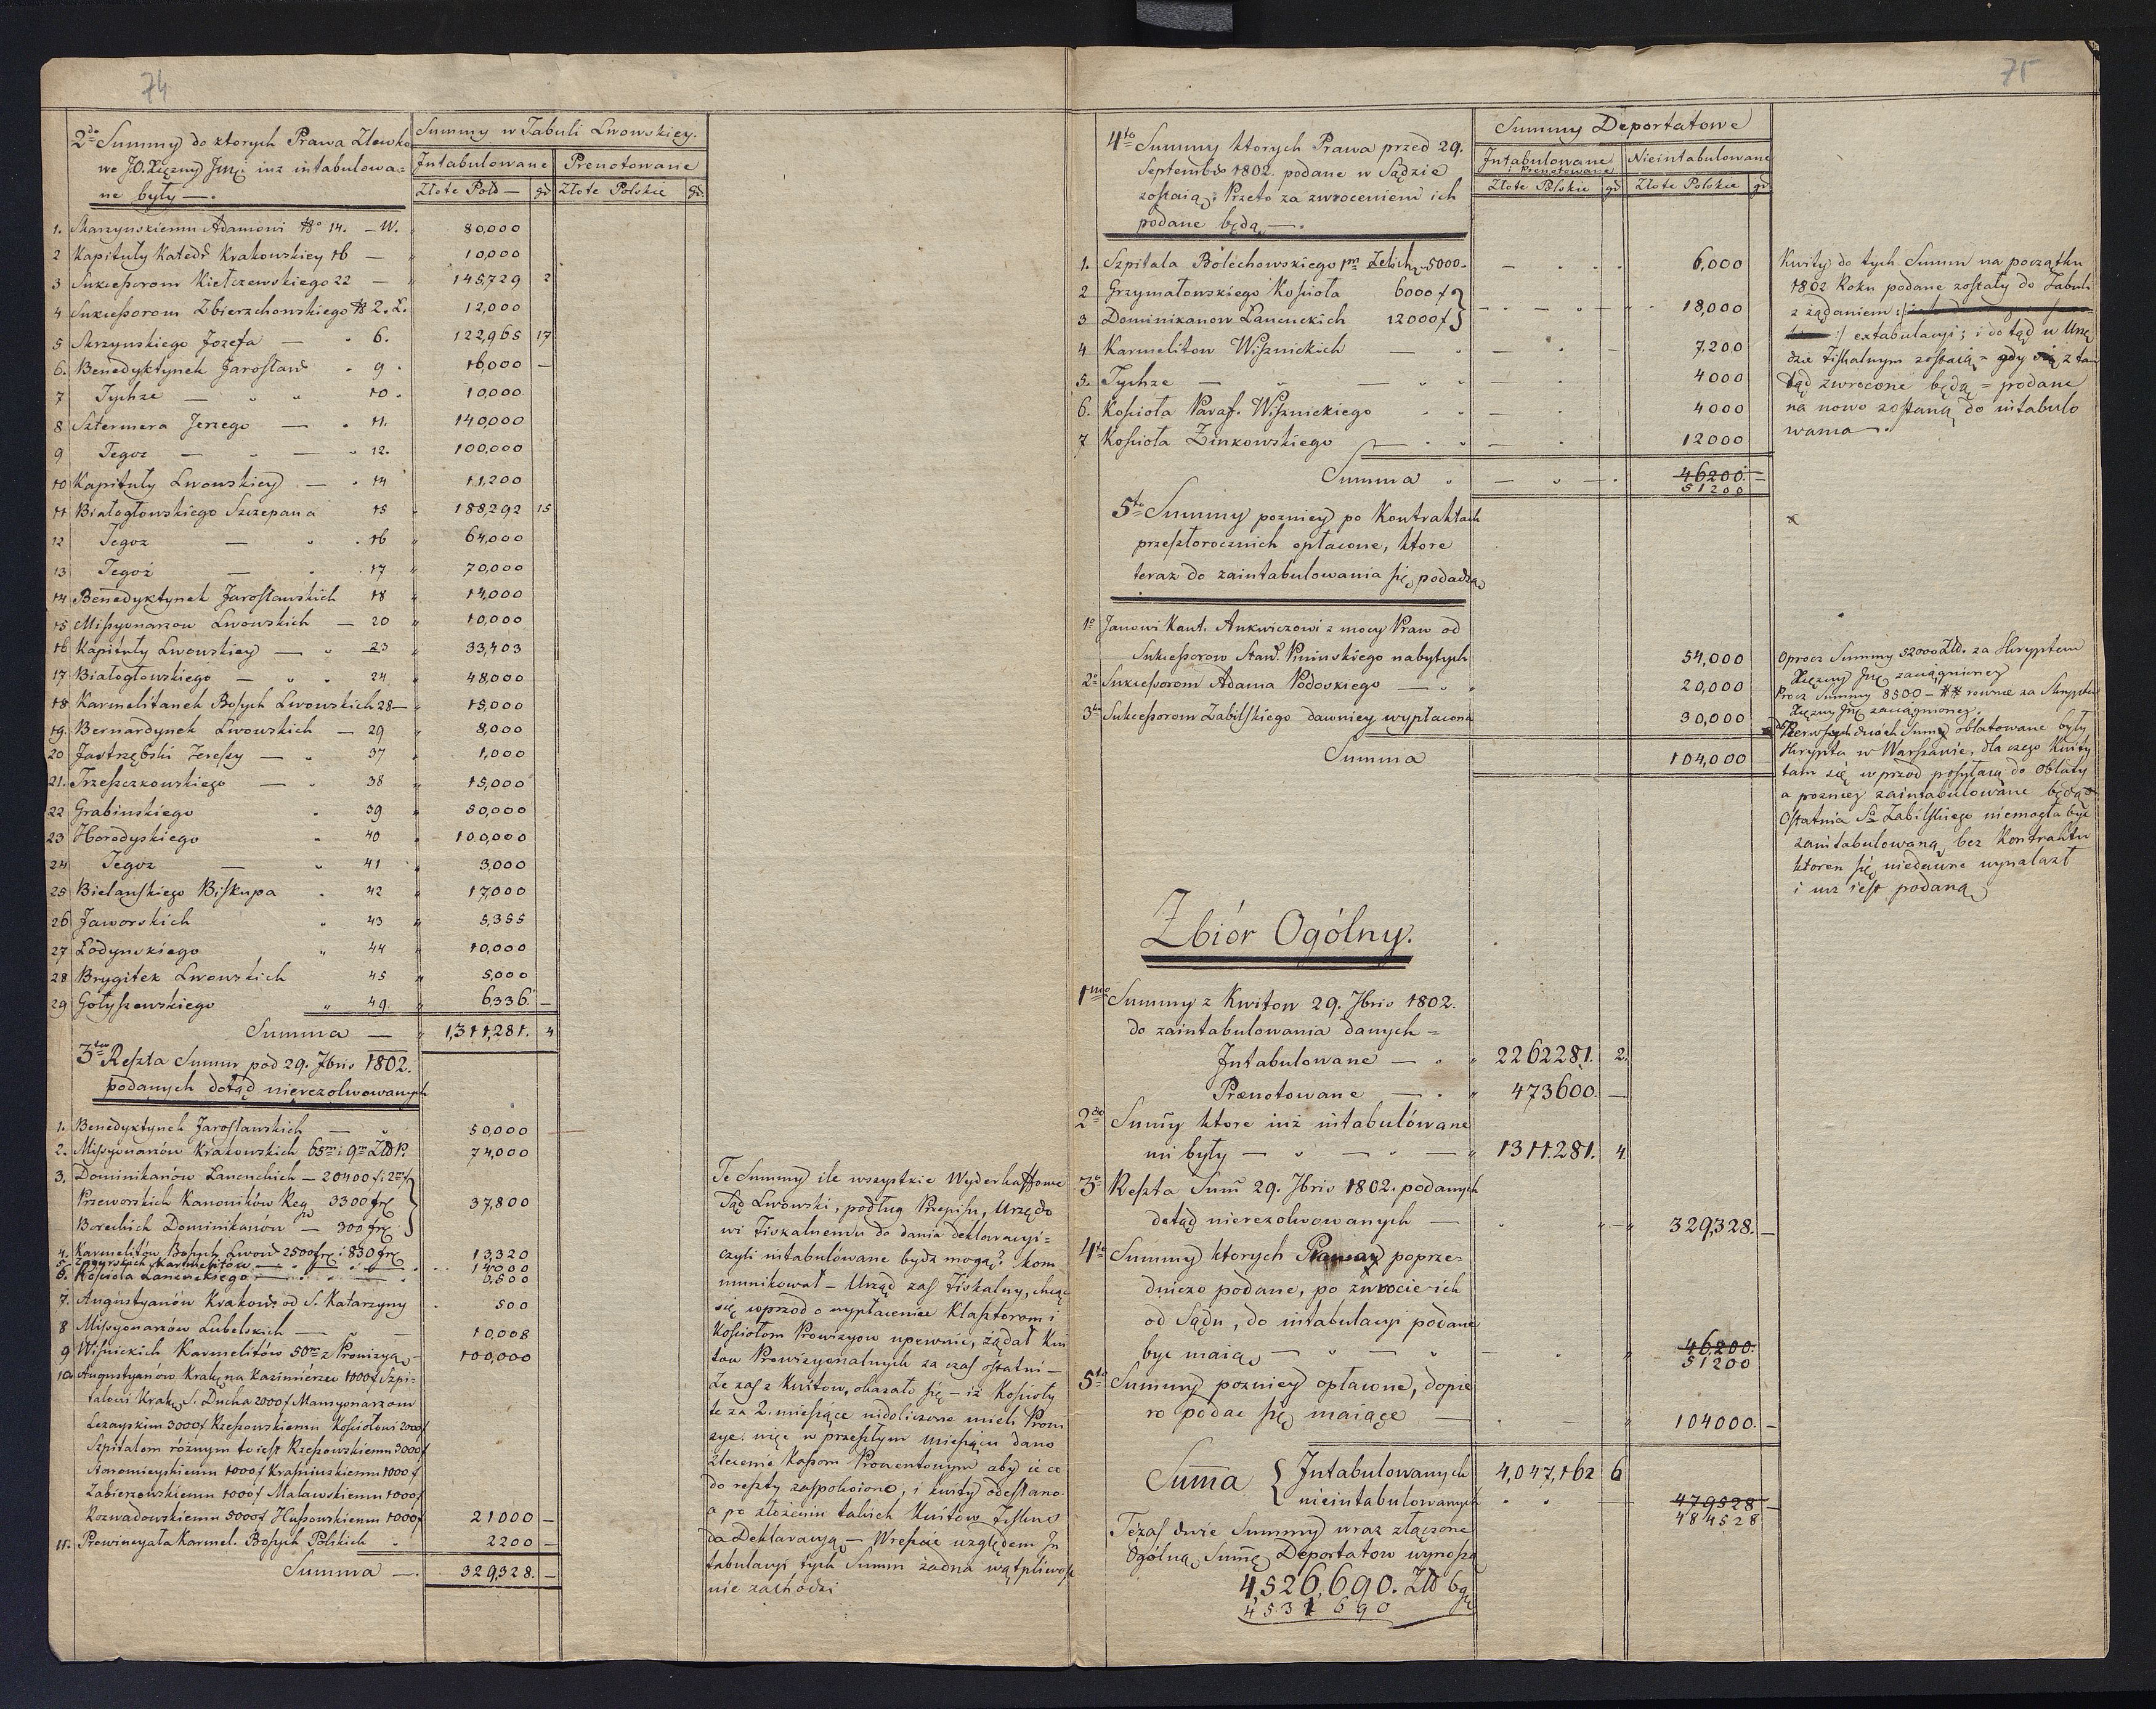 74
2do Summy do ktorych Prawa Zlewko
we J.O. Xiężny Jmę. iuż intabulowa=
ne były —.
Summy w Tabuli Lwowskiey.
Intabulowane Prenotowane
Złote Pols — gr Złote Polskie gr.
1. Skarzynskiemu Adamowi No 14. — W. 80,000
2 Kapituły Katedr Krakowskiey 16 — 10,000
3 Sukcessorom Kiełczewskiego 22 — 145,729 2
4 Sukcessorom Zbierzchowskiego No 2. L. 12,000
5 Skrzynskiego Jozefa — 6. 122,965 17
6. Benedyktynek Jarosław 9. 16,000 —
7 Tychże — 10. 10,000
8 Sztermera Jerzego — 11. 140,000
9 Tegoz — 12. 100,000
10 Kapituły Lwowskiey — 14 11,200
11 Białogłowskiego Szczepana 15 188,292 15
12 Tegoz — 16 64,000
13 Tegoż — 17 70,000
14 Benedyktynek Jarosławskich 18 14,000
15 Missyonarzow Lwowskich — 20 10,000
16 Kapituły Lwowskiey — 23 33,403
17 Białogłowskiego — 24 48,000
18 Karmelitanek Bosych Lwowskich 28 — 15,000
19. Bernardynek Lwowskich — 29 8,000
20 Jastrzębski Teressy — 37 1,000
21. Trzeszczkowskiego — 38 15,000
22 Grabinskiego 39 50,000
23 Horodyskiego 40 100,000
24 Tegoz — 41 3,000
25 Bielanskiego Biskupa 42 17,000
26 Jaworskich 43 5,355
27 Łodynskiego 44 10,000
28 Brygitek Lwowskich 45 5,000
29 Gołyszewskiego 49. 6,336. —
Summa — 1,311,281. 4
3tio Reszta Summ pod 29. 7bris 1802.
podanych dotąd nierezolwowanych
1. Benedyktynek Jarosławskich — 50,000
2. Missyonarzow Krakowskich 65m i 9m Złt P. 74,000
3. Dominikanów Łancuckich — 20400 f i 2m f
Przeworskich Kanoników Reg 3300 frę 37,800
Boreckich Dominikanów — 300 frę
4. Karmelitów Bosych Lwow 2500 frę i 830 frę 13,320
5. Zagorskich Karmelitów — 14000
6. Kościoła Łancuckiego — 6,500
7. Augustyanów Krakow: od S. Katarzyny 500
8 Missyonarzów Lubelskich — 10,008
9 Wiśnickich Karmelitów 50m z Prowizyą — 100,000
10 Augustyanów Krak: na Kazimierzu 1000 f Szpi=
talowi Krak: S. Ducha 2000 f Mansyonarzom
Leżayskim 3000 f Rzeszowskiemu Kościołowi 2000 f
Szpitalom różnym to iest Rzeszowskiemu 3000 f
Staromieyskiemu 1000 f Krasniuskiemu 1000 f
Zabierzowskiemu 1000 f Malawskiemu 1000 f
Rozwadowskiemu 5000 f Hussowskiemu 1000 f 21000 —
11. Prowincyała Karmel. Bosych Polskich 2200 —
Summa —. 329,328. —
Te Summy ile wszystkie Wyderkaffowe
Sąd Lwowski, podług Przepisu, Urzędo
wi Fiskalnemu do dania deklaracyi=
czyli intabulówane bydz mogą? skom
munikował — Urząd zas Fiskalny, chcąc
się wprzod o wypłacenie Klasztorom i
Kościołom Prowizyow upewnić, żądał Kwi
tow Prowizyonalnych za czas ostatni —
Że zas z Kwitow, okazało się — iż Kościoły
te za 2. miesiące niedoliczone mieli Prowi
zye. więc w przeszłym miesiącu dano
zlecenie Kassom Prowentowym aby ie co
do reszty zaspokoiono, i kwity odesłano.
a po złożeniu takich Kwitow Fiskus
da Deklaracyą — W resćie względem In
tabulacyi tych Summ żadna wątpliwosc
nie zachodzi
75
4to Summy ktorych Prawa przed 29.
Septembris 1802. podane w Sądzie
zostaią; Przeto za zwroceniem ich
podane będą —.
Summy Deportatowe
Intabulowane i Prenotowane Nieintabulowane
Złote Polskie gr Złote Polskie gr
1. Szpitala Bolechowskiego 1m Zelich 5000. 6,000
2 Grzymałowskiego Kościoła 6000 f
3 Dominikanow Łancuckich 12000 f 18,000
4 Karmelitow Wisznickich — 7,200
5. Tychże — 4000
6. Kościoła Paraf. Wisznickiego 4000
7 Kościoła Zinkowskiego — 12000
Summa 46200. —
51200
Kwity do tych Summ na początku
1802 Roku podane zostały do Tabuli
z żądaniem
extabulacyi; i dotąd w Urzę
dzie Fiskalnym zostaią — gdy z tam
tąd zwrocone będą = podane
na nowo zostaną do intabulo
wania —.
x
5to Summy pozniey po Kontraktach
przeszłorocznich opłacone, ktore
teraz do zaintabulowania się podadzą
1o Janowi Kant. Ankwiczowi z mocy Praw od
Sukcessorow Staw. Pninskiego nabytych 54,000
2o Sukcessorom Adama Podoskiego — 20,000
3tio Sukcessorom Zabilskiego dawniey wypłacona 30,000
Summa 104,000
Oprocz Summy 52000 Złt. za Skryptem
Xiężny Jmę zaciągnioney
Procz Summy 8500 — ## rownie za Skryptem
Xiężny Jmę zaciągnioney.
Pierwszych dwoch Summ oblatowane były
Skrypta w Warszawie, dla czego Kwity
tam się wprzod posyłaią do Oblaty
a pozniey zaintabulowane będą
Ostatnia Sa Zabilskiego niemogła być
zaintabulowaną bez Kontraktu
ktoren się niedawno wynalazł
i iuz iest podaną
Zbiór Ogólny.
1mo Summy z Kwitow 29. 7bris 1802.
do zaintabulowania danych =
Intabulowane — 2262281. 2.
Prænotowane — 473600. —
2do Sum̄y ktore iuż intabulówane
mi były — 1311.281. 4
3o Reszta Sum̄ 29. 7bris 1802. podanych
dotąd nierezolwowanych — 329,328. —
4to Summy ktorych Prawa poprze=
dniczo podane, po zwrocie ich
od Sądu, do intabulacyi podane
byc maią — 46,200.
51200
5to Summy pozniey opłacone, dopie
ro podac się maiące — 104000. —
Sum̄a Intabulowanych 4,047,162 6
nieintabulowanych 479528 —
484528
Te zas dwie Summy wraz złączone
Ogólną Sum̄ę Deportatow wynoszą
4,526,690. Złt 6 gr
4531690